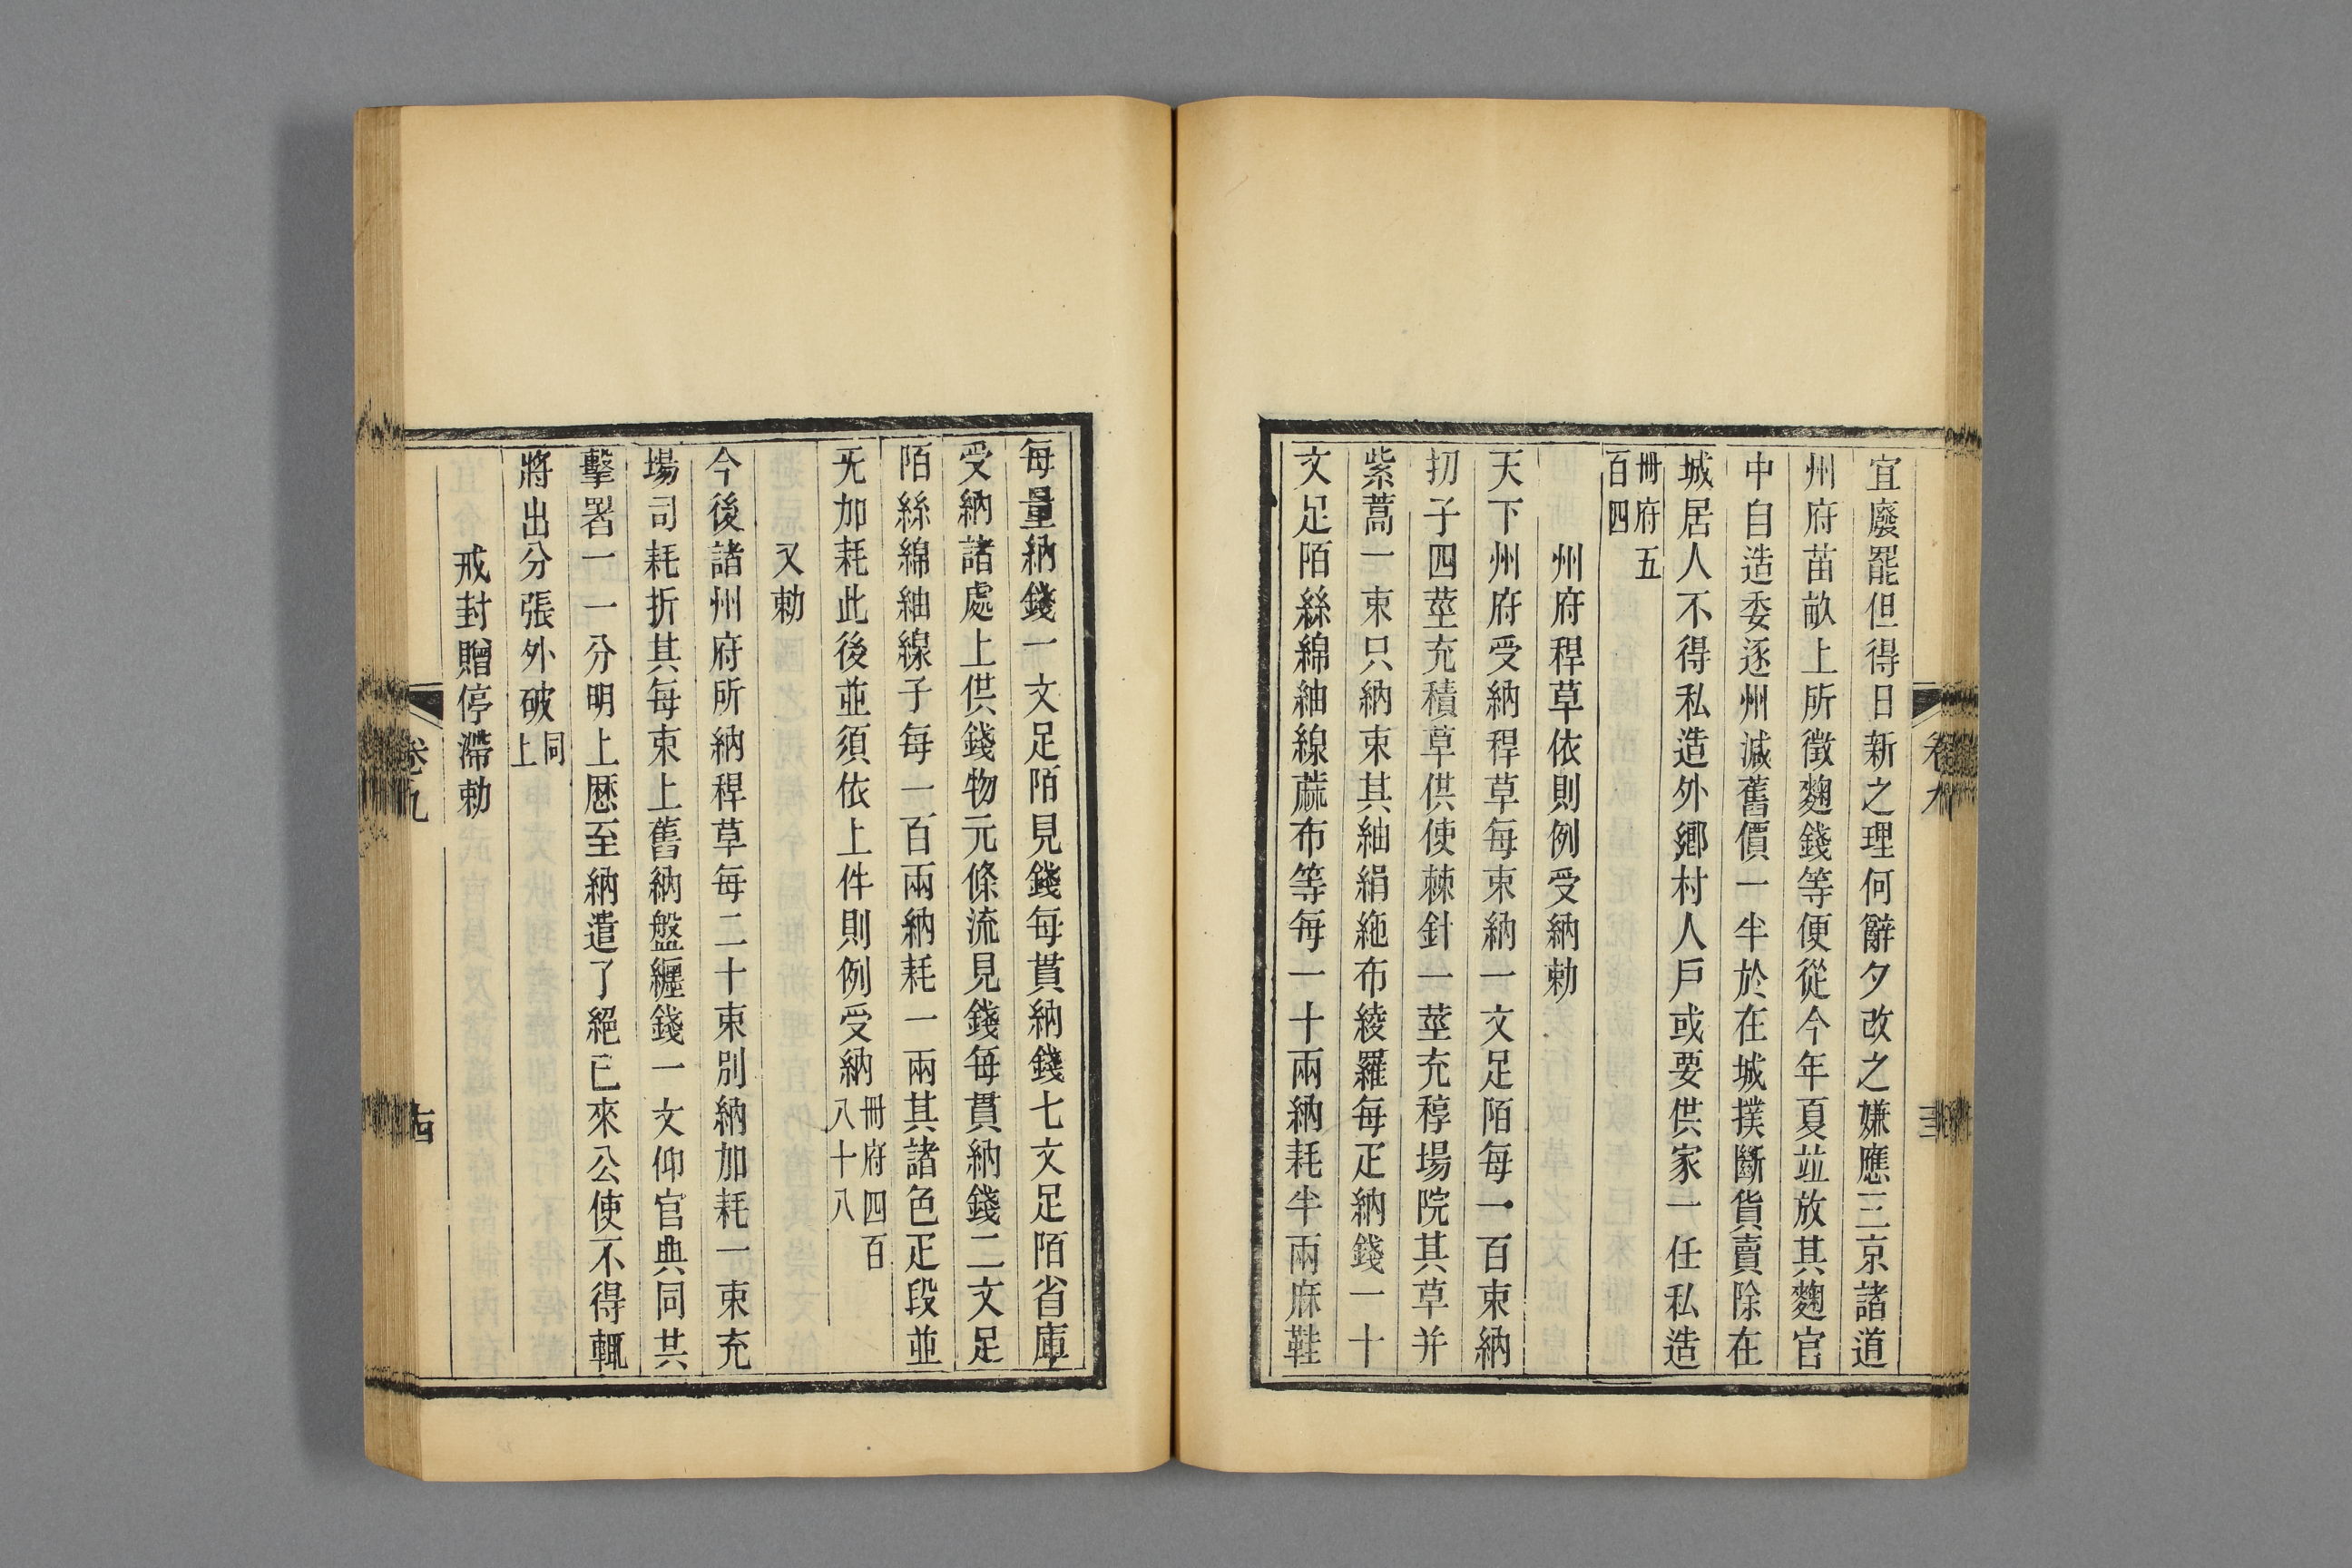 宜廢罷但得日新之理何辭夕改之嫌應三京諸道
州府苗畝上所徵麹錢等便從今年夏並放其麹官
中自造委逐州減舊價一半於在城撲斷貨賣除在
城居人不得私造外鄉村人戶或要供家一任私造
冊府五
百四
州府稈草依則例受納勅
天下州府受納稈草每束納一文足陌每一百束納
扨子四莖充積草供使棘針一莖充稕場院其草并
紫蒿一束只納束其紬絹絁布綾羅每疋納錢一十
文足陌絲綿紬線蔴布等每一十兩納耗半兩麻鞋
每量納錢一文足陌見錢每貫納錢七文足陌省庫
受納諸處上供錢物元條流見錢每貫納錢二文足
陌絲綿紬線子每一百兩納耗一兩其諸色疋段並
无加耗此後並須依上件則例受納冊府四百
八十八
又勅
今後諸州府所納稈草每二十束別納加耗一束充
場司耗折其每束上舊納盤纏錢一文仰官典同共
擊署一一分明上曆至納遣了絕已來公使不得輒
將出分張外破同
上
戒封贈停滯勅
卷九
十四